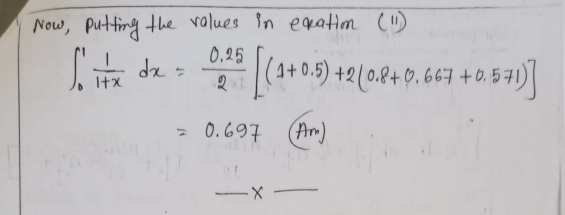 Now, putting the values in equation (11)
∫₀¹ 1/(1+x) dx = 0.25/2 [(1+0.5)+2(0.8+0.667+0.571)]
= 0.697 (Ans)
—x—